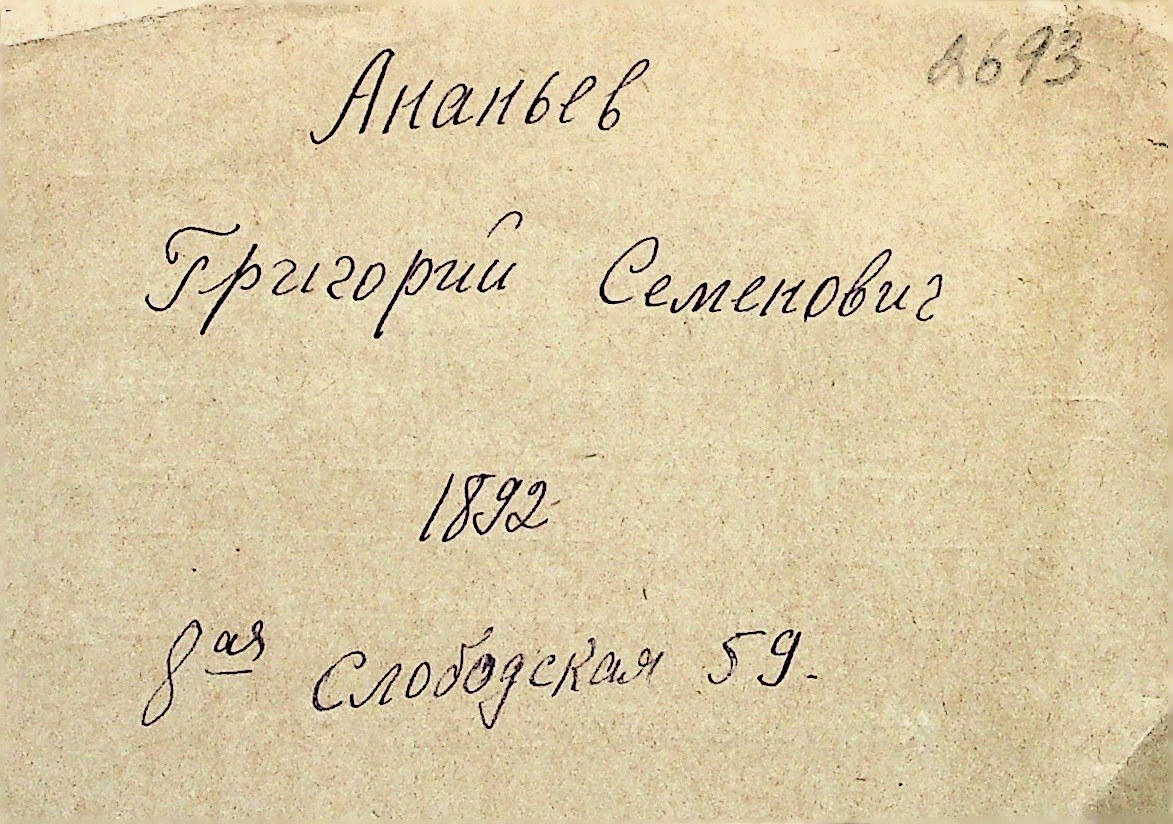 2693
Ананьев
Григорий Семенович
1892
8ая Слободская 59.